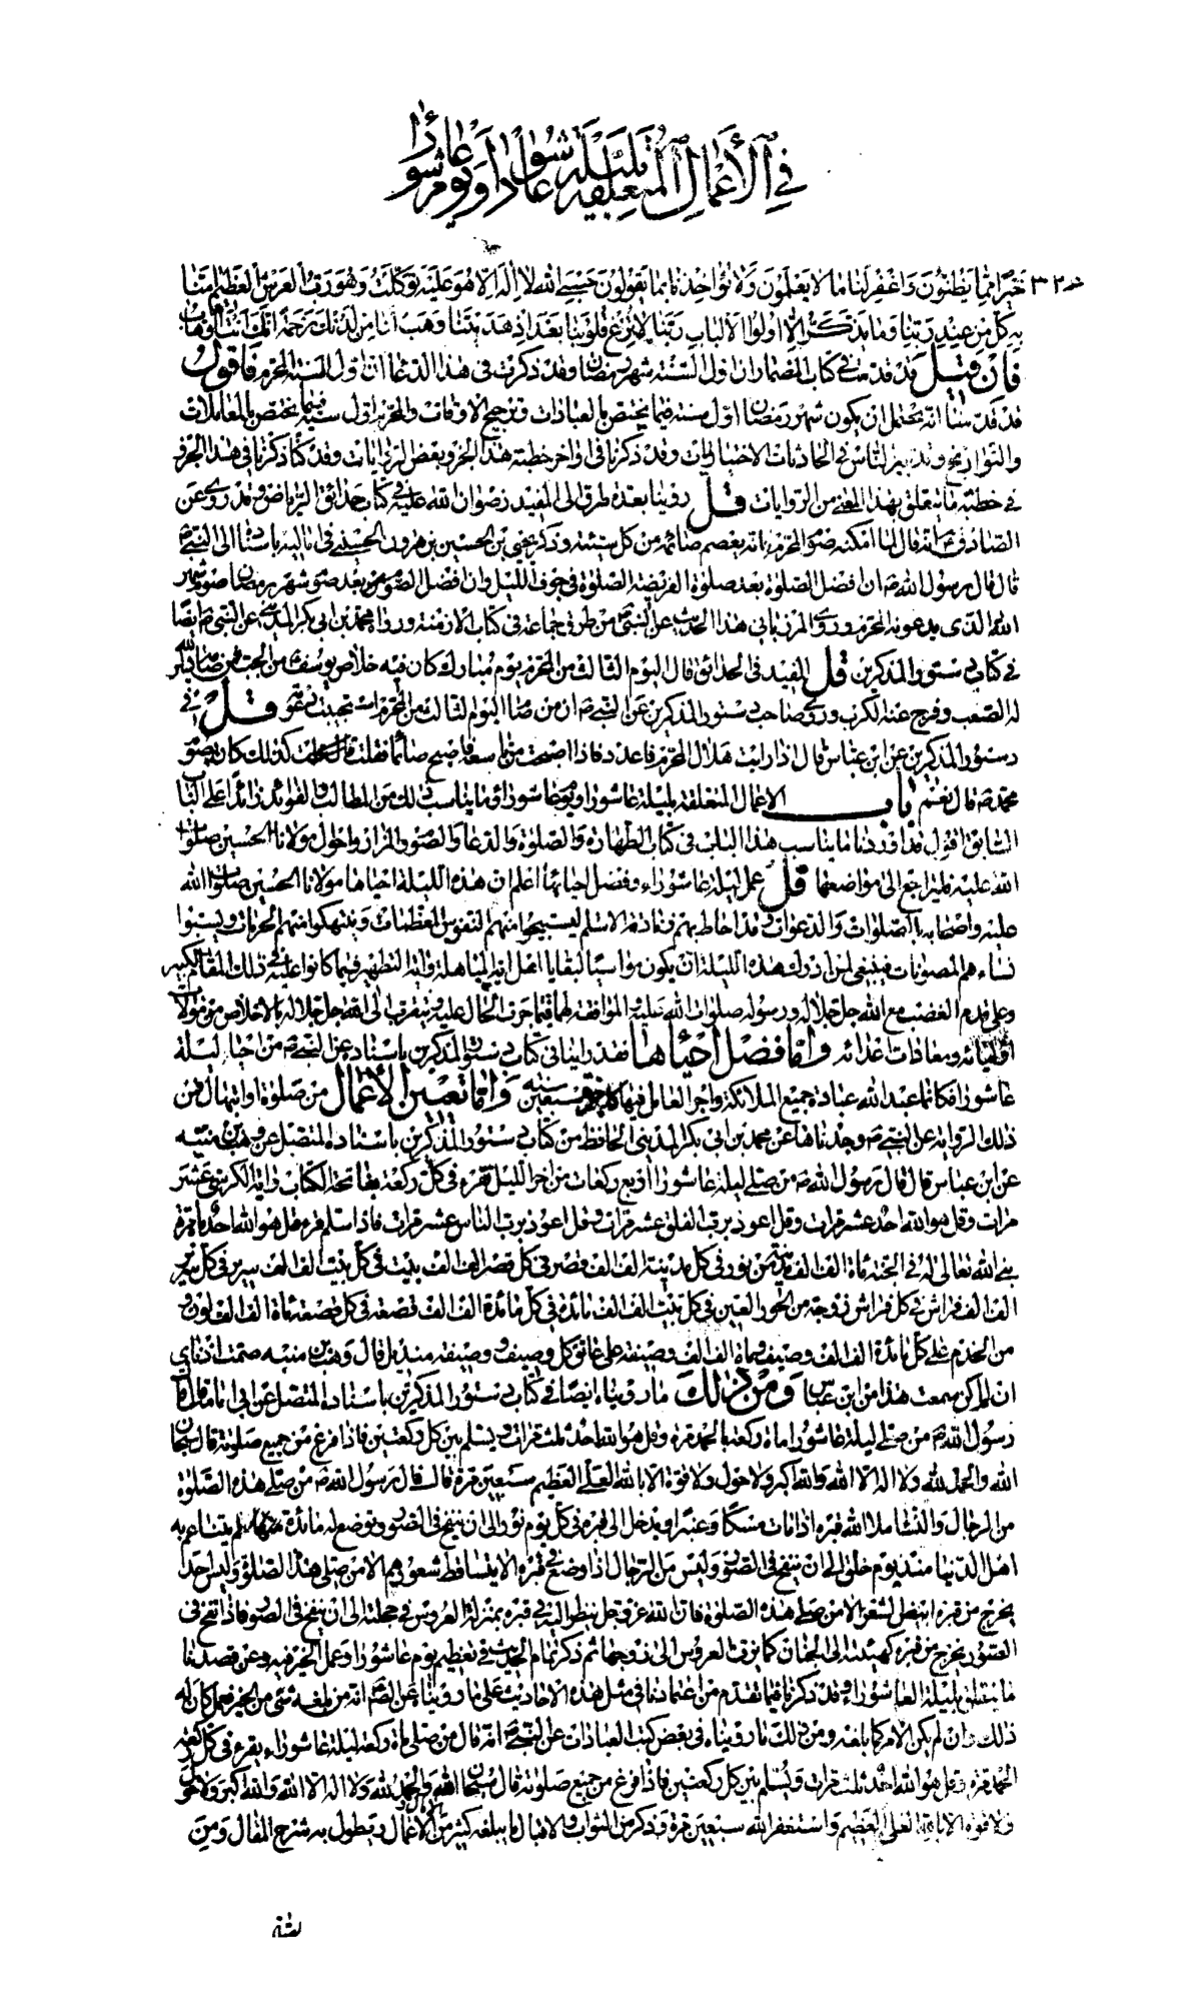 في الأعمال المتعلقة بليلة عاشورا ويوم عاشورا
٣٢٠ خيرا مما يظنون واغفر لنا ما لا يعلمون ولا تؤاخذنا بما يقولون حسبي الله لا إله إلا هو عليه توكلت وهو رب العرش العظيم امنا
به كل من عند ربنا وما يذكر الا اولوا الالباب ربنا لا تزغ قلوبنا بعد اذ هديتنا وهب لنا من لدنك رحمة انك انت الوهاب
فان قيل قد قدمت في كتاب المضمار ان اول السنة شهر رمضان وقد ذكرت في هذا الدعا ان اول السنة المحرم فاقول
قد قدمنا انه يحتمل ان يكون شهر رمضان اول سنة فيما يختص بالعبادات وترجيح الاوقات والمحرم اول سنة فيما يختص بالمعاملات
والتواريخ وتدبير الناس في الحادثات الاختياريات وقد ذكرنا في اواخر خطبة هذا الجزو بعض الروايات وقد كنا ذكرنا في هذا الجزو
في خطبته ما يتعلق بهذا المعنى من الروايات قل روينا بعدة طرق الى المفيد رضوان الله عليه في كتاب حدائق الرياض وقد روي عن
الصادق ع انه قال لمن امكنه صوم المحرم انه يعصم صائمه من كل سيئة وذكر يحيى بن الحسين بن هرون الحسيني في اماليه باسناده الى النبي ص
قال قال رسول الله ص ان افضل الصلوة بعد صلوة الفريضة الصلوة في جوف الليل وان افضل الصوم من بعد صوم شهر رمضان صوم شهر
الله الذي يدعونه المحرم وروى المرزباني هذا الحديث عن النبي ص من طرق جماعة في كتاب الازمنة ورواه محمد بن ابي بكر المديني عن النبي ص ايضا
في كتاب دستور المذكرين قل المفيد في الحدائق قال اليوم الثالث من المحرم يوم مبارك كان فيه خلاص يوسف ع من الجب فمن صامه يسر الله
له الصعب وفرج عنه الكرب وروى صاحب دستور المذكرين عن النبي ص ان من صام اليوم الثالث من المحرم استجيبت دعوته قل في
دستور المذكرين عن ابن عباس قال اذا رايت هلال المحرم فاعدد فاذا اصبحت من تاسعه فاصبح صائما قلت كذلك كان يصوم
محمد ص قال نعم باب الاعمال المتعلقة بليلة عاشورا ويوم عاشورا وما يناسب ذلك من المطالب والفوائد زائدا على الباب
السابق اقول قد اوردنا ما يناسب هذا الباب في كتاب الطهارة والصلوة والدعا والصوم والمزار واحوال مولانا الحسين صلوات
الله عليه فليراجع الى مواضعها قل عمل ليلة عاشوراء وفضل احيائها اعلم ان هذه الليلة احياها مولانا الحسين صلوات الله
عليه واصحابه بالصلوات والدعوات وقد احاط بهم زنادقة الاسلام ليستبيحوا منهم النفوس المعظمات وينتهكوا منهم الحرمات ويسبوا
نساءهم المصونات فينبغي لمن ادرك هذه الليلة ان يكون مواسيا لبقايا اهل اية المباهلة واية التطهير فيما كانوا عليه في ذلك المقام الكبير
وعلى قدم الغضب مع الله جل جلاله ورسوله صلوات الله عليه والموافقة لهما فيما جرت الحال عليه ويتقرب الى الله جل جلاله بالاخلاص من موالات
اوليائه ومعادات اعدائه واما فضل احيائها فقد راينا في كتاب دستور المذكرين باسناده عن النبي ص من احيا ليلة
عاشورا فكانما عبد الله عبادة جميع الملائكة واجر العامل فيها كاجر سبعين سنة واما تعيين الأعمال من صلوة او ابتهال فمن
ذلك الرواية عن النبي ص وجدناها عن محمد بن ابي بكر المديني الحافظ من كتاب دستور المذكرين باسناده المتصل عن وهب بن منبه
عن ابن عباس قال قال رسول الله ص من صلى ليلة عاشورا اربع ركعات من اخر الليل يقرء في كل ركعة بفاتحة الكتاب واية الكرسي عشر
مرات وقل هو الله احد عشر مرات وقل اعوذ برب الفلق عشر مرات وقل اعوذ برب الناس عشر مرات فاذا سلم قرء قل هو الله احد مائة مرة
بنى الله تعالى له في الجنة مائة الف الف مدينة من نور في كل مدينة الف الف قصر في كل قصر الف الف بيت في كل بيت الف الف سرير في كل سرير
الف الف فراش في كل فراش زوجة من الحور العين في كل بيت الف الف مائدة في كل مائدة الف الف قصعة في كل قصعة مائة الف الف لون و
من الخدم على كل مائدة الف الف وصيف ومائة الف الف وصيفة على عاتق كل وصيف ووصيفة منديل قال وهب بن منبه صمت اذناي
ان لم اكن سمعت هذا من ابن عباس ومن ذلك ما رويناه ايضا في كتاب دستور المذكرين باسناده المتصل عن ابي امامة قال قال
رسول الله ص من صلى ليلة عاشورا مائة ركعة بالحمد مرة وقل هو الله احد ثلث مرات ويسلم بين كل ركعتين فاذا فرغ من جميع صلوته قال سبحان
الله والحمد لله ولا اله الا الله والله اكبر ولا حول ولا قوة الا بالله العلي العظيم سبعين مرة قال قال رسول الله ص من صلى هذه الصلوة
من الرجال والنسا ملا الله قبره اذا مات مسكا وعنبرا ويدخل الى قبره في كل يوم نور الى ان ينفخ في الصور وتوضع له مائدة يتناعم به
اهل الدنيا منذ يوم خلق الى ان ينفخ في الصور وليس من الرجال اذا وضع في قبره الا يتساقط شعورهم الا من صلى هذه الصلوة وليس احد
يخرج من قبره ابيض الشعر الا من صلى هذه الصلوة فان الله عز وجل ينظر اليه في قبره بمنزلة العروس في حجلته الى ان ينفخ في الصور فاذا نفخ في
الصور يخرج من قبره كهيئته الى الجنان كما يزف العروس الى زوجها ثم ذكر تمام الحديث في تعظيم يوم عاشورا وعمل الخير فيه ونحن قصدنا
ما يتعلق بليلة العاشوراء وقد ذكرنا فيما تقدم من اعتمادنا في مثل هذه الاحاديث على ما رويناه عن الصادق ع انه من بلغه شئ من الخير فعمل كان له
ذلك وان لم يكن الامر كما بلغه ومن ذلك ما رويناه في بعض كتب العبادات عن النبي ص انه قال من صلى مائة ركعة ليلة عاشوراء يقرء في كل ركعة
الحمد مرة وقل هو الله احد ثلث مرات ويسلم بين كل ركعتين فاذا فرغ من جميع صلوته قال سبحان الله والحمد لله ولا اله الا الله والله اكبر ولا حول
ولا قوة الا بالله العلي العظيم واستغفر الله سبعين مرة وذكر من الثواب والاقبال ما يبلغه كثير من الآمال والاعمال ويطول به شرح المقال ومن